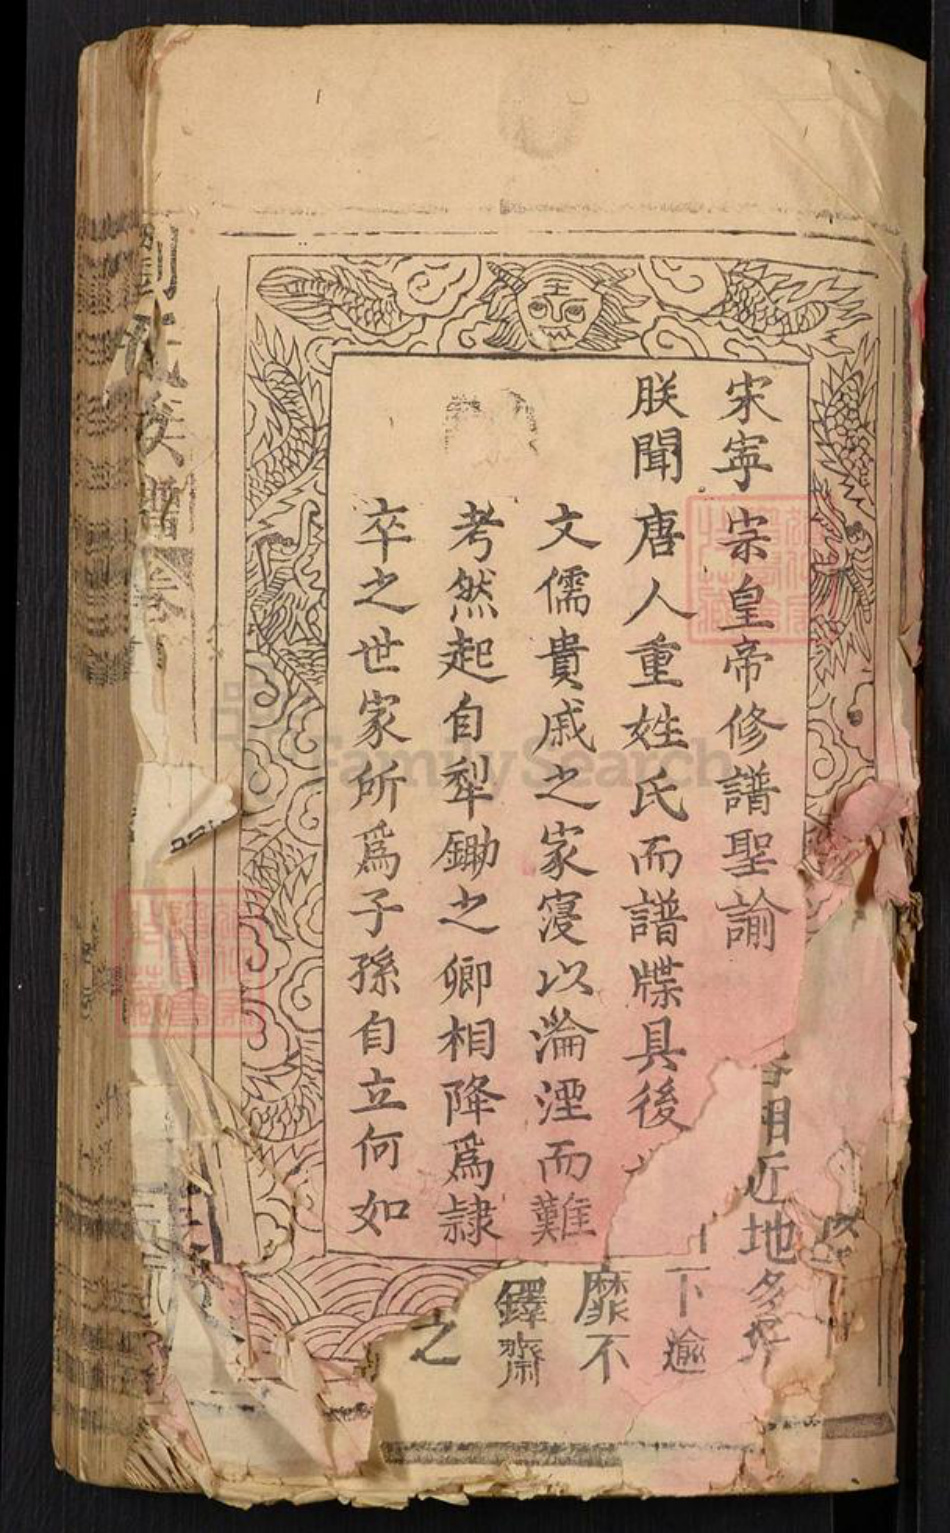 宋寧宗皇帝修譜聖諭
朕聞唐人重姓氏而譜牒具後
文儒貴戚之家寖以淪湮而難
考然起自犁鋤之卿相降為隷
卒之世家所為子孫自立何如
相近地多
下逾
靡不
鐸齋
之
FamilySearch